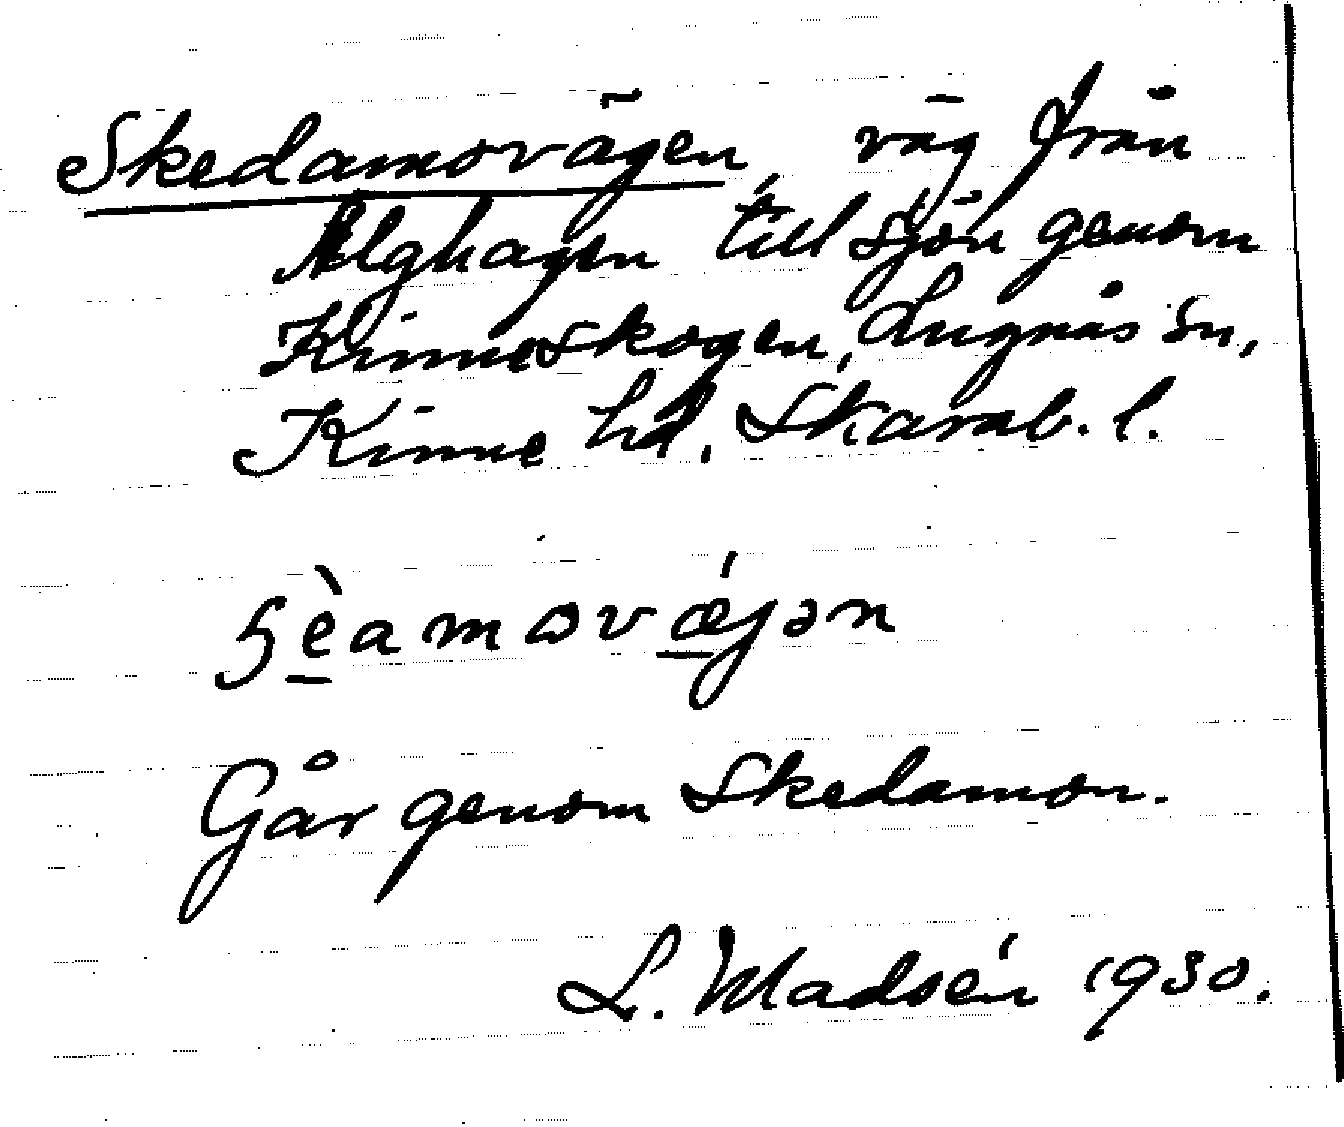 Skedamovägen, väg från
Älghagen till sjön genom
Kinneskogen, Lugnås sn,
Kinne hd, Skarab. l.
ʂèamovǽjən
Går genom Skedamon.
L. Madsén 1930.